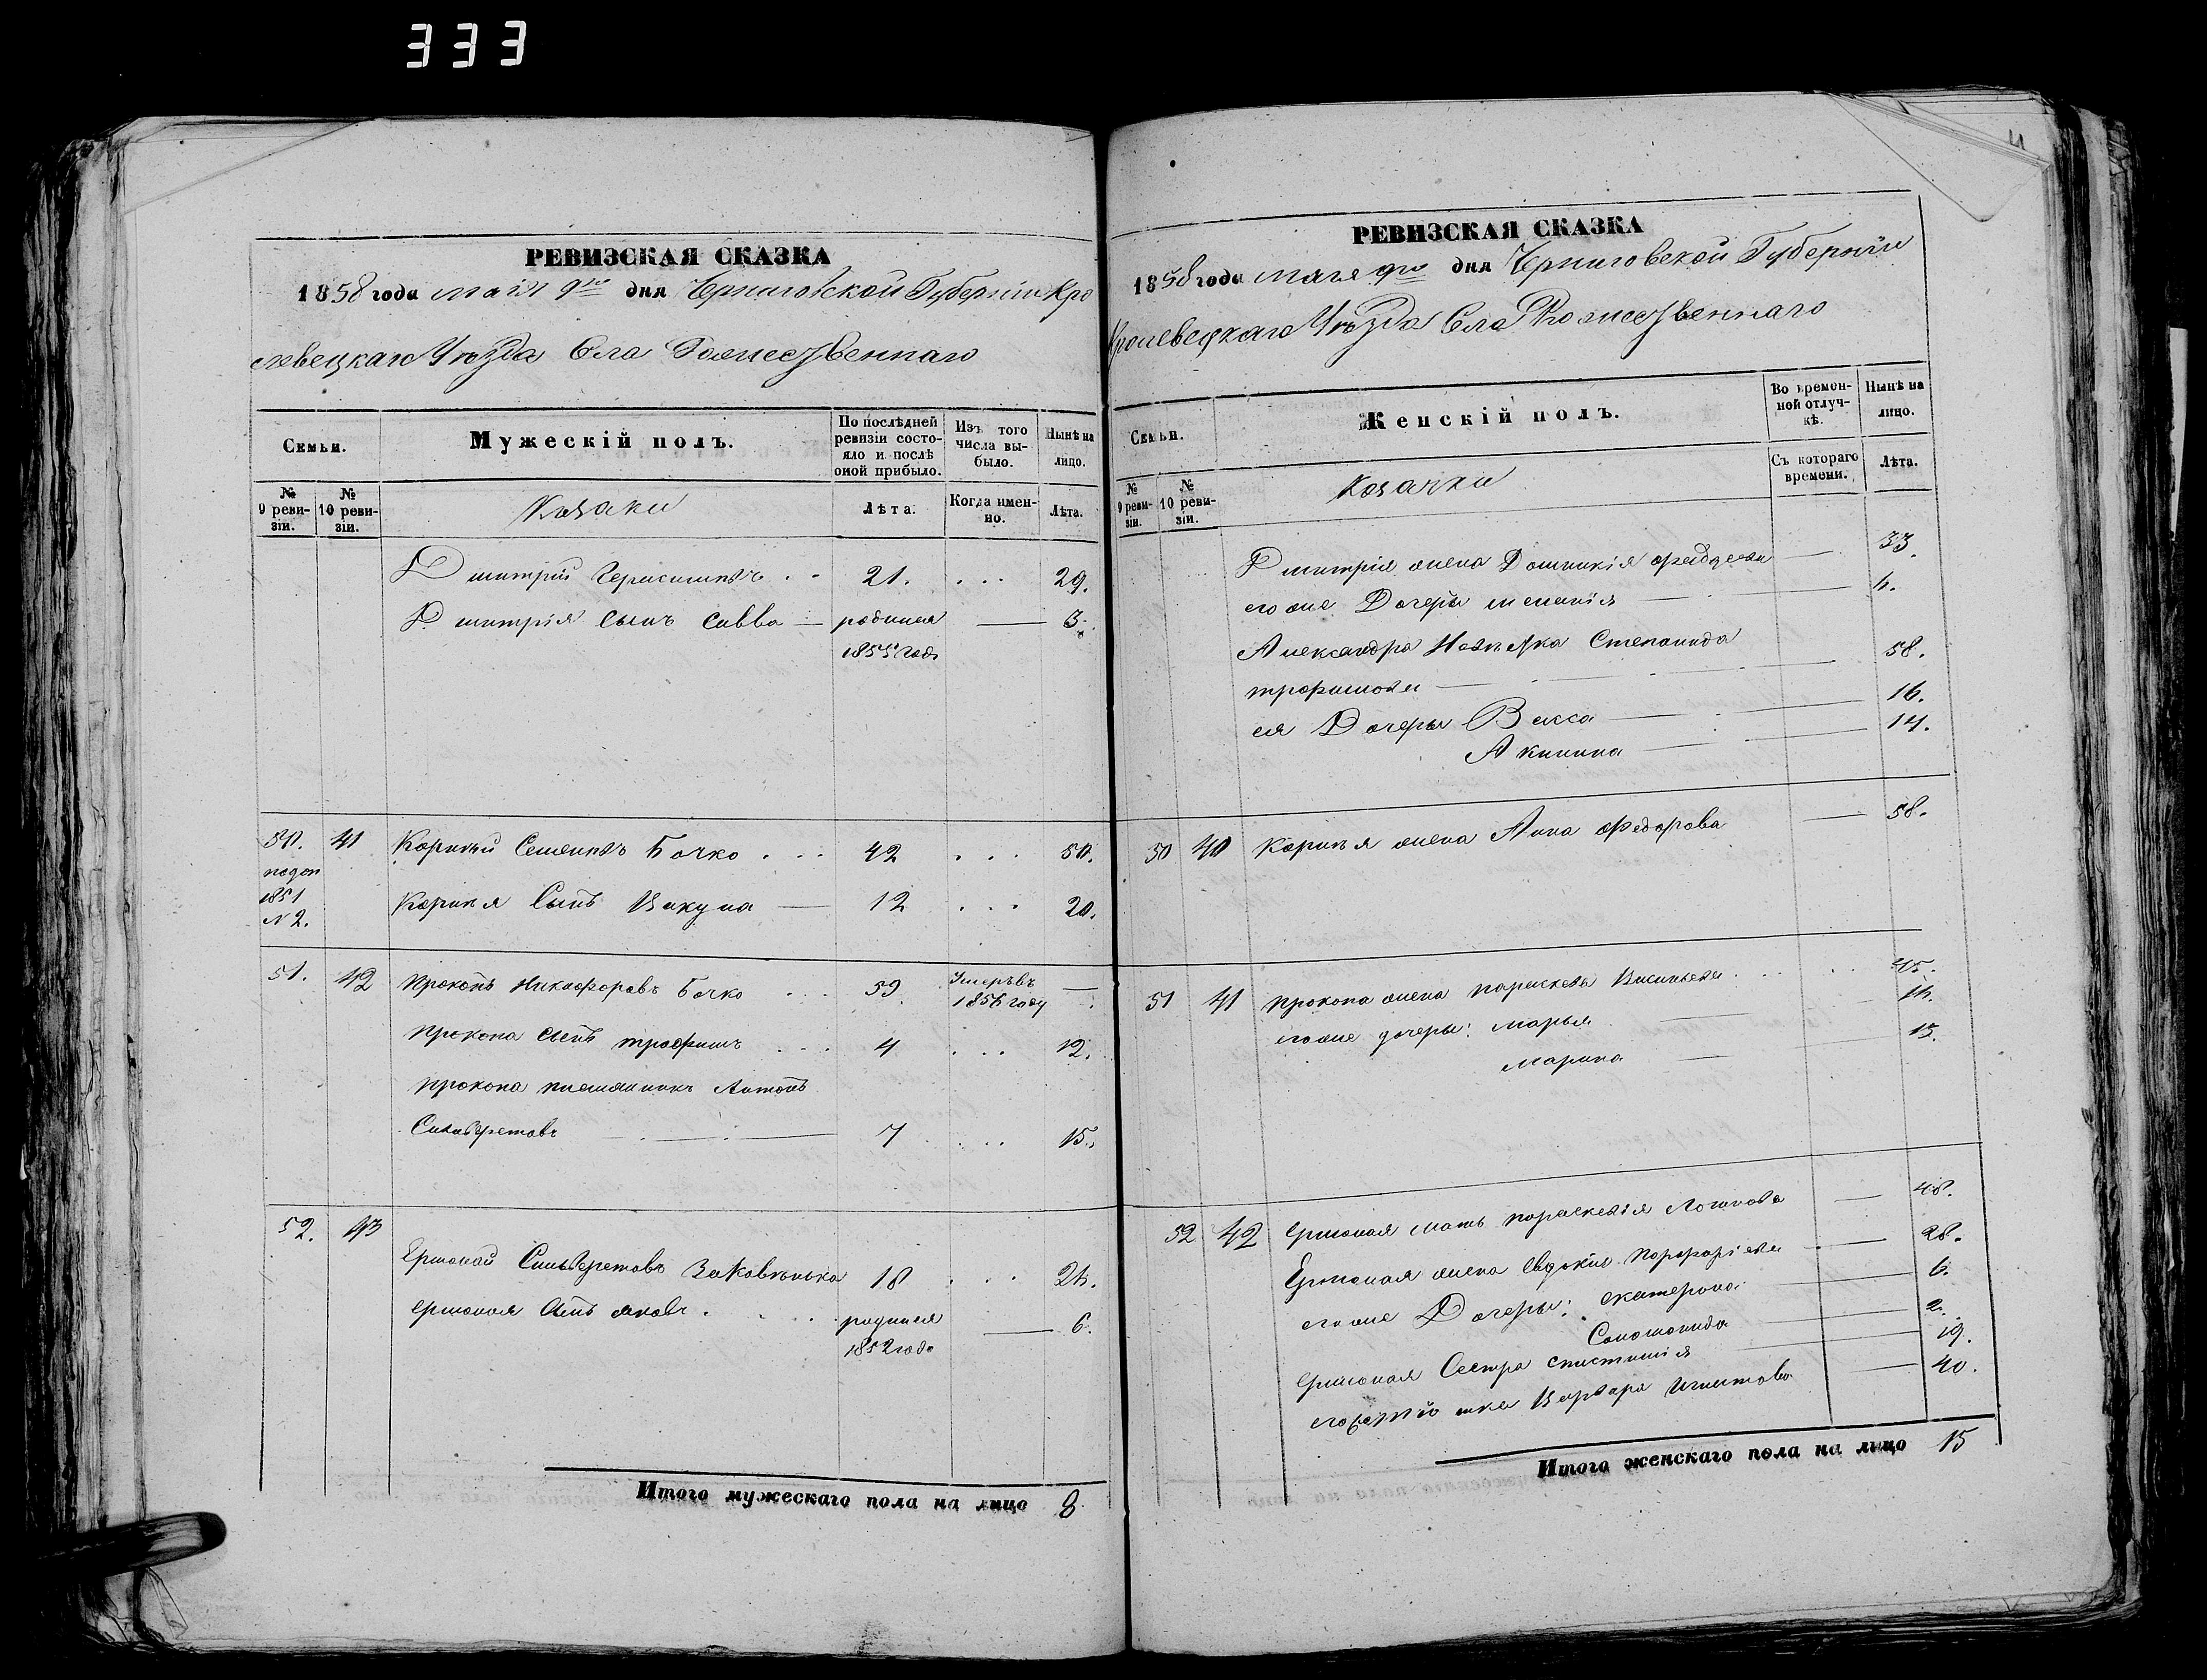 333
РЕВИЗСКАЯ СКАЗКА
1858 года мая 9го дня Черниговской Губерніи Кро
левецкаго Уѣзда Села Рожественнаго
Семьи.
Мужескій полъ.
По послѣдней ревизіи состояло и послѣ оной прибыло.
Изъ того числа выбыло.
Нынѣ на лицо.
№ 9 ревизіи.
№ 10 ревизіи.
Козаки
Лѣта.
Когда именно.
Лѣта.
Дмитрій Герасимовъ . . 21. . . . 29.
Дмитрія Сынъ Савва — родился — 3.
1855 года
50. 41 Корнѣй Семеновъ Бочко . . . 42 . . . 50.
подоп
1851
N 2.
Корнѣя Сынъ Вакула — 12 . . . 20.
51. 42 Прокопъ Никифоровъ Бочко . . . 53. Умеръ въ —
1856 году
Прокопа Сынъ трофимъ . . . 4 . . . 12.
Прокопа племянникъ Антонъ
Силивестровъ — 7 . . . 15.
52. 43
Ермолай Силивестровъ 18 . . . 26.
Ермолая Сынъ яковъ . . . родился — 6.
1852 года
Итого мужескаго пола на лицо 8
РЕВИЗСКАЯ СКАЗКА
1858 года мая 9го дня Черниговской Губерніи
Кролевецкаго Уѣзда Села Рожественнаго
Семьи.
Женскій полъ.
Во временной отлучкѣ.
Нынѣ на лицо.
№ 9 ревизіи.
№ 10 ревизіи.
Козачки
Съ котораго времени.
Лѣта.
Дмитрія жена Домникія — 33.
его же Дочерь — 6.
Александра Невѣстка Степанида
трофимова — 58.
ея Дочеры Васса — 16.
Акилина — 14.
50 40 Корнѣя жена Анна Федорова — 58.
51 41 Прокопа жена параскева Васильева . . . 45.
его же дочеры: марья — 16.
марина — 13.
52 42 Ермолая мать параскевія Логинова — 48.
Ермолая жена Евдокія Порфиріева — 28.
его же Дочеры: екатерина — 6.
Соломонида — 2.
Ермолая Сестра — 19.
Варвара Игнатова — 40.
Итого женскаго пола на лицо 15